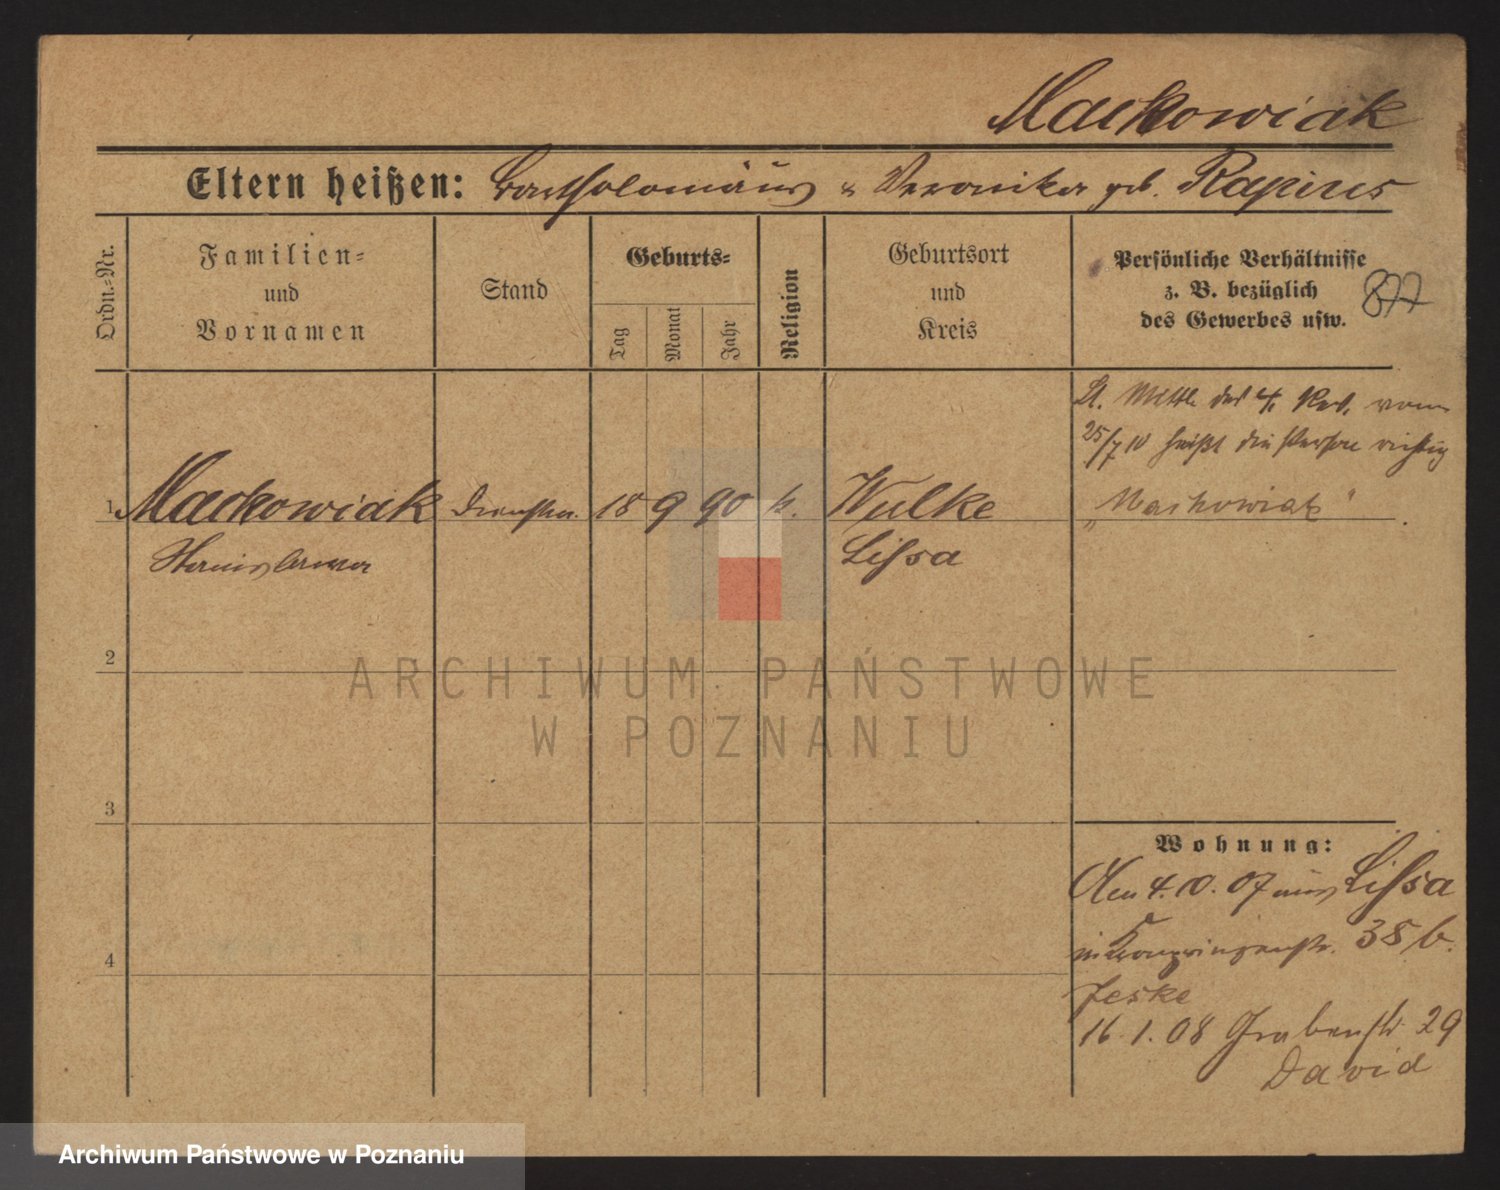 Mackowiak
Eltern heißen: Bartholomäus u Veronika geb. Rapius
Ordn.-Nr.
Familien-
und
Vornamen
Stand
Geburts-
Tag
Monat
Jahr
Religion
Geburtsort
und
Kreis
Persönliche Verhältnisse
z. B. bezüglich
des Gewerbes usw.
877
Lt. Mttlg des 4. Rev. vom
25/7 10 heißt die Person richtig
"Maskowiak"
1 Mackowiak 18 9 90 k. Wulke
Stanislawa Lissa
2
3
4
Wohnung:
Den 4.10.07 aus Lissa
in Kronprinzenstr. 38 b.
Jeske
16.1.08 Grabenstr 29
David
ARCHIWUM PAŃSTWOWE
W POZNANIU
Archiwum Państwowe w Poznaniu